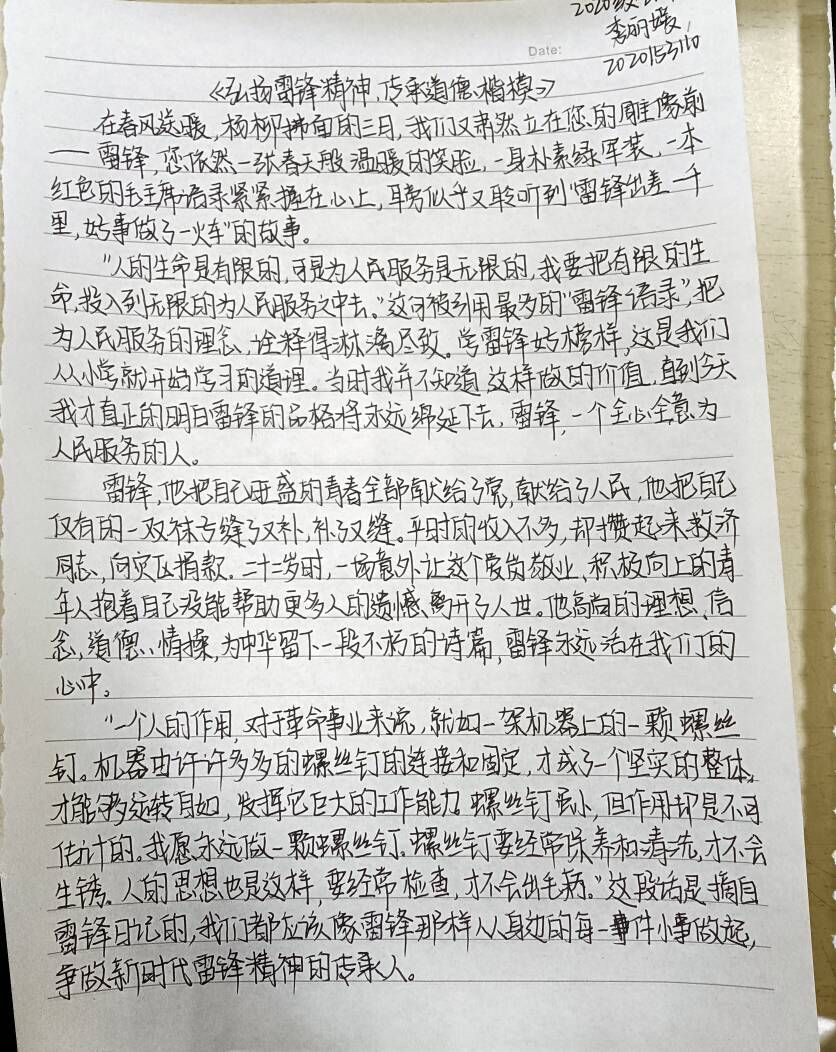 2020级
李丽媛
2020153110
Date:
《弘扬雷锋精神,传承道德楷模》
在春风送暖,杨柳拂面的三月,我们又肃然立在您的雕像前
——雷锋,您依然一张春天般温暖的笑脸,一身朴素绿军装,一本
红色的毛主席语录紧紧握在心上,耳旁似乎又聆听到“雷锋出差一千
里,好事做了一火车”的故事。
“人的生命是有限的,可是为人民服务是无限的,我要把有限的生
命,投入到无限的为人民服务之中去。”这句被引用最多的“雷锋语录”,把
为人民服务的理念,诠释得淋漓尽致。学雷锋好榜样,这是我们
从小学就开始学习的道理。当时我并不知道这样做的价值,直到今天
我才真正的明白雷锋的品格将永远绵延下去,雷锋,一个全心全意为
人民服务的人。
雷锋,他把自己旺盛的青春全部献给了党,献给了人民,他把自己
仅有的一双袜子缝了又补,补了又缝。平时的收入不多,却攒起来救济
同志、向灾区捐款。二十二岁时,一场意外让这个爱岗敬业、积极向上的青
年人抱着自己没能帮助更多人的遗憾离开了人世。他高尚的理想、信
念,道德、情操,为中华留下一段不朽的诗篇,雷锋永远活在我们的
心中。
“一个人的作用,对于革命事业来说,就如一架机器上的一颗螺丝
钉。机器由许许多多的螺丝钉的连接和固定,才成了一个坚实的整体,
才能够运转自如,发挥它巨大的工作能力。螺丝钉虽小,但作用却是不可
估计的。我愿永远做一颗螺丝钉。螺丝钉要经常保养和清洗,才不会
生锈。人的思想也是这样,要经常检查,才不会出毛病。”这段话是摘自
雷锋日记的,我们都应该像雷锋那样从身边的每一件小事做起,
争做新时代雷锋精神的传承人。